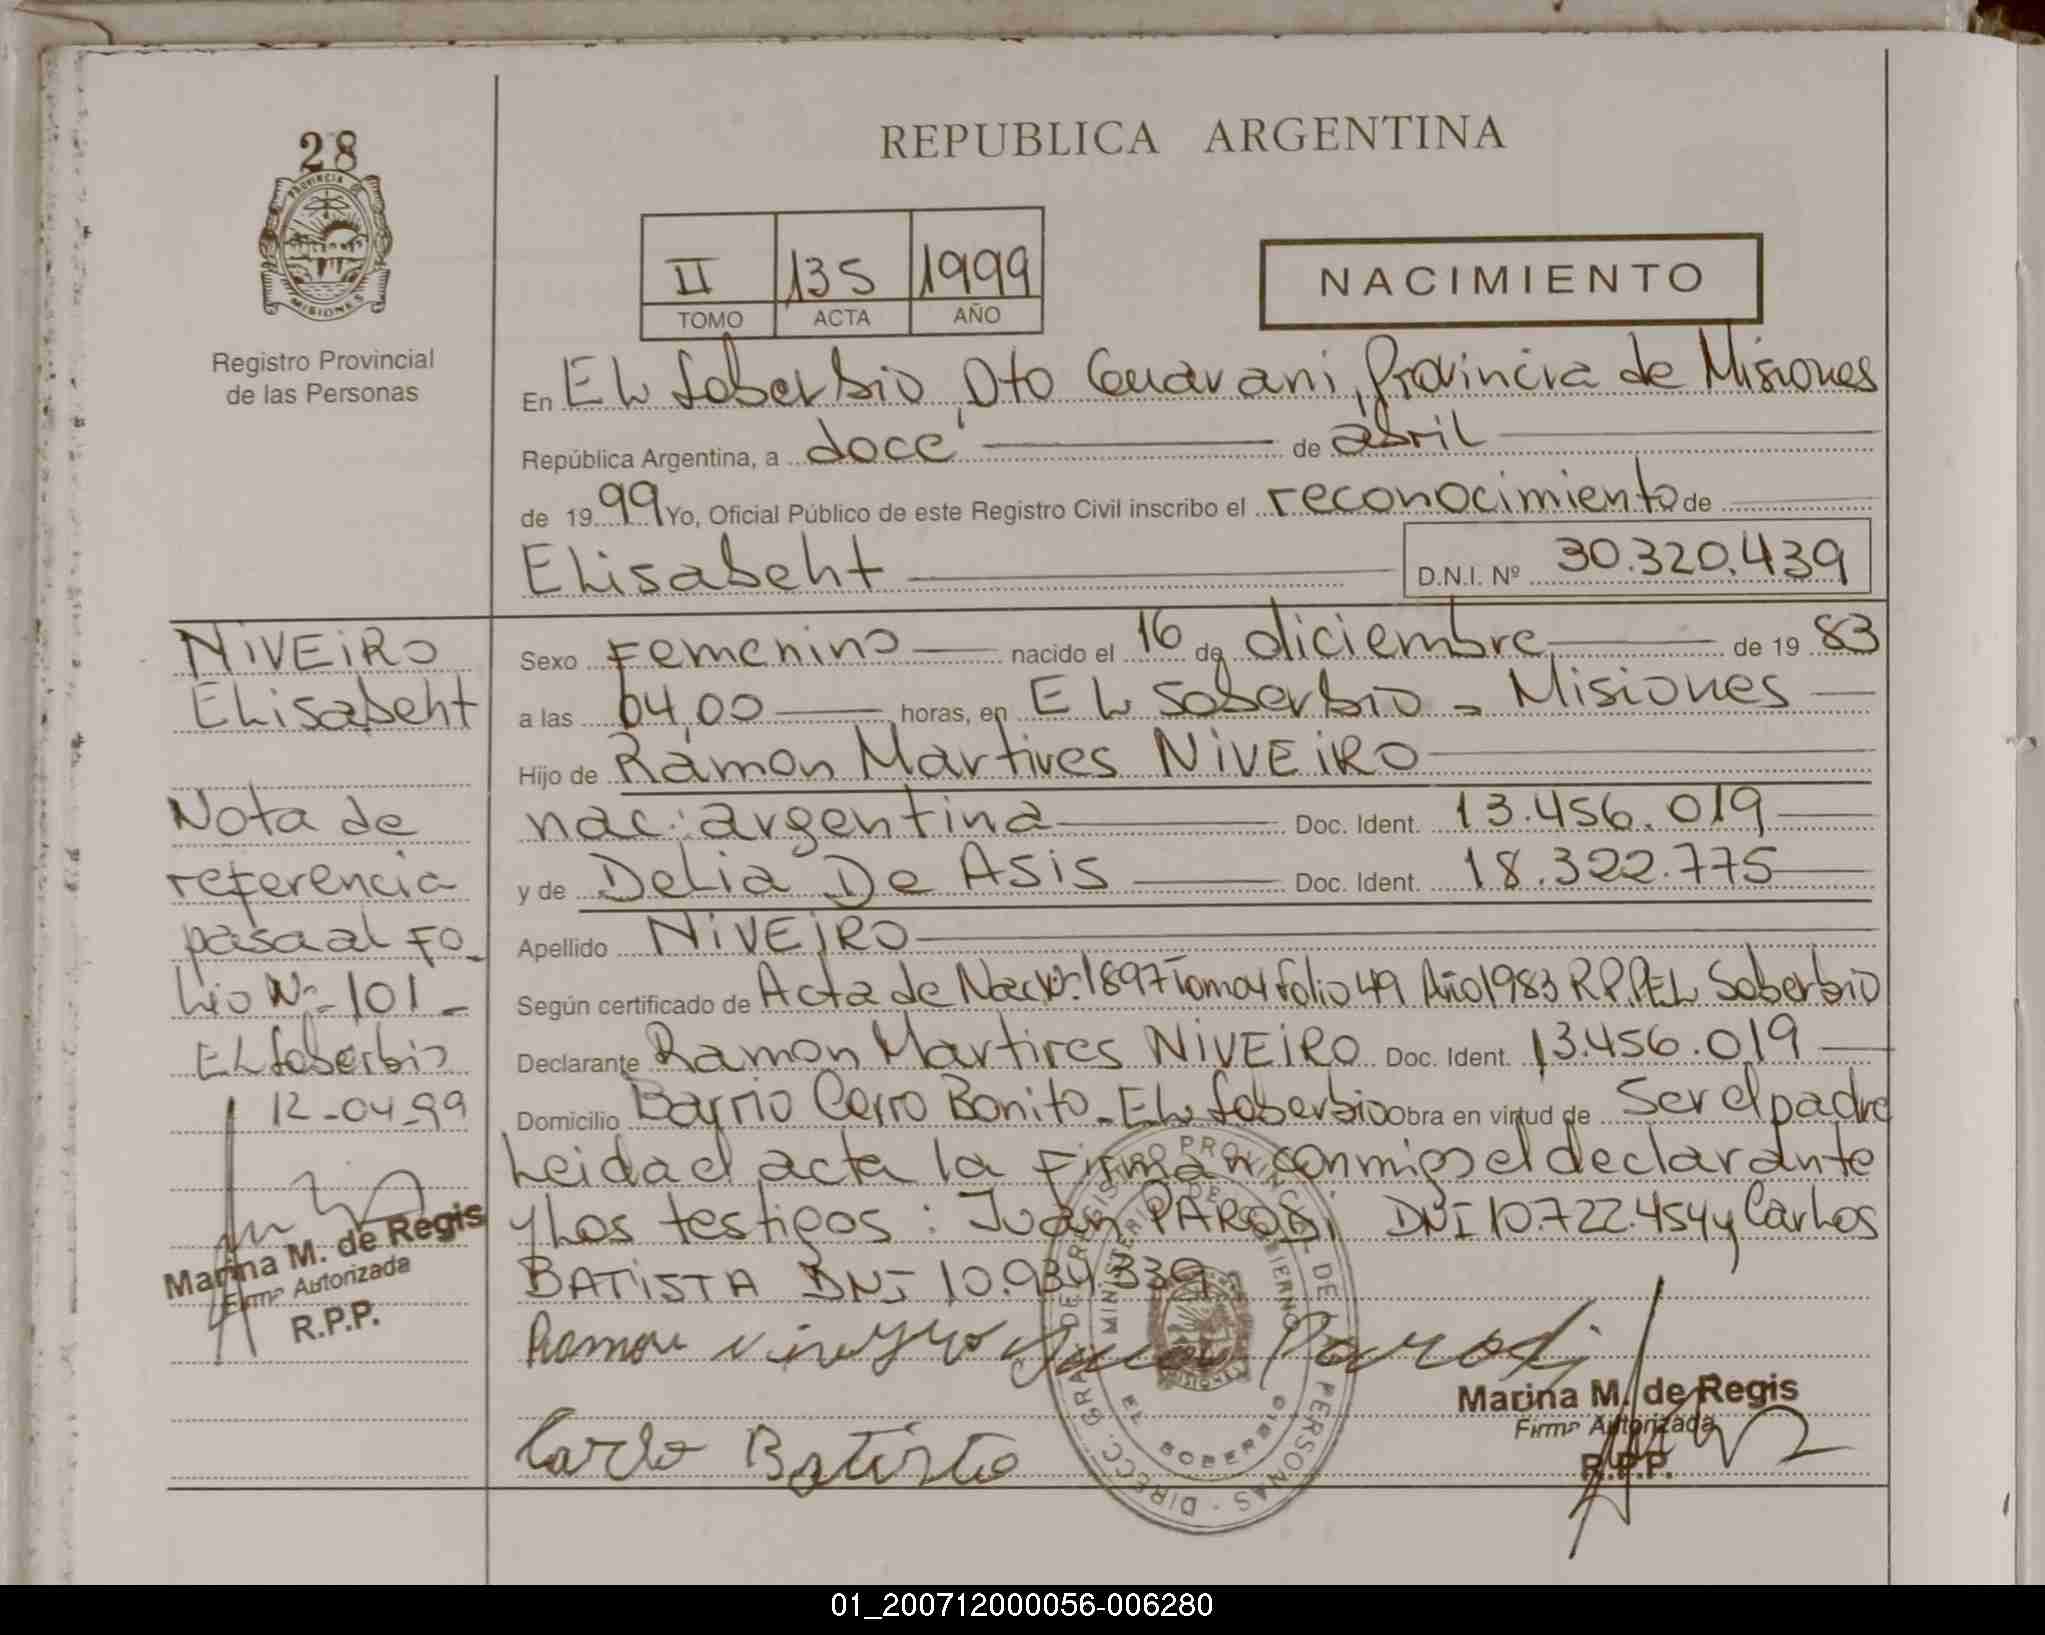 28
PROVINCIA DE
MISIONES
Registro Provincial
de las Personas
REPUBLICA ARGENTINA
II 135 1999
TOMO ACTA AÑO
NACIMIENTO
En EL Soberbio, Dto Guarani, Provincia de Misiones
República Argentina, a doce de abril
de 1999 Yo, Oficial Público de este Registro Civil inscribo el reconocimiento de
Elisabeht D.N.I. Nº 30.320.439
NiVEiRO
Elisabeht
Sexo Femenino nacido el 16 de diciembre de 1983
a las 04,00 horas, en EL Soberbio - Misiones
Hijo de Ramon Martires NiVEiRO
nac: argentina Doc. Ident. 13.456.019
y de Delia De Asis Doc. Ident. 18.322.775
Apellido NiVEiRO
Según certificado de Acta de Nac Nº: 1897 Tomo folio 49 Año 1983 R.P.P EL Soberbio
Declarante Ramon Martires NiVEiRO Doc. Ident. 13.456.019
Domicilio Barrio Cerro Bonito - EL Soberbio Obra en virtud de Ser el padre
Leida el acta la Firman conmigo el declarante
y Los testigos: Juan PARODi DNI 10.722.454 y Carlos
BATiSTA DNI 10.934.339
Nota de
referencia
pasa al Fo_
Lio Nº 101_
EL Soberbio
12-04-99
Marina M. de Regis
Firma Autorizada
R.P.P.
Ramon Juan Parodi
Carlo Batista
Marina M. de Regis
Firma Autorizada
R.P.P.
DIRECC. GRAL. DE REGISTRO PROVINCIAL DE LAS PERSONAS
MINISTERIO DE GOBIERNO
EL SOBERBIO
MISIONES
01_200712000056-006280